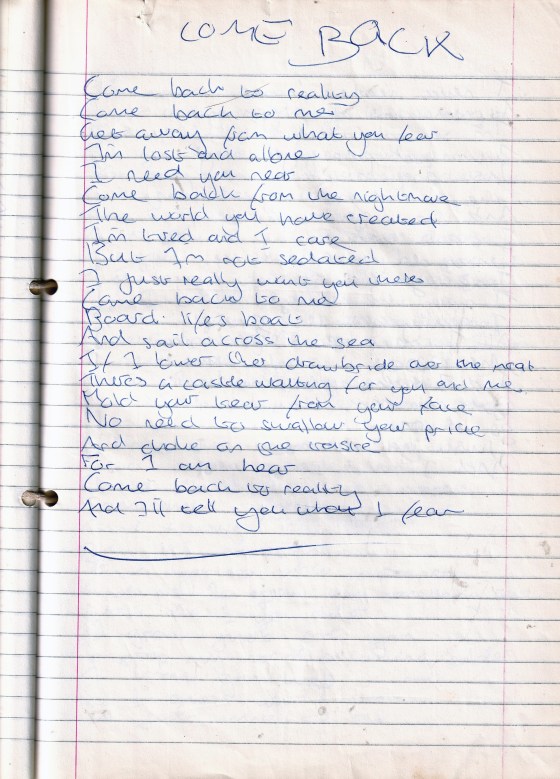 COME BACK
Come back to reality
Come back to me
Get away from what you fear
I'm lost and allone
I need you near
Come back from the nightmare
The world you have created
I'm tired and I care
But I'm not sedated
I just really want you
Come back to me
Board lifes boat
And sail across the sea
If I lower the drawbride over the moat
Theres a castle waiting for you and me
Hold your tear from your face
No need to swallow your pride
And choke on the taste
For I am hear
Come back to reality
And I'll tell you what I fear